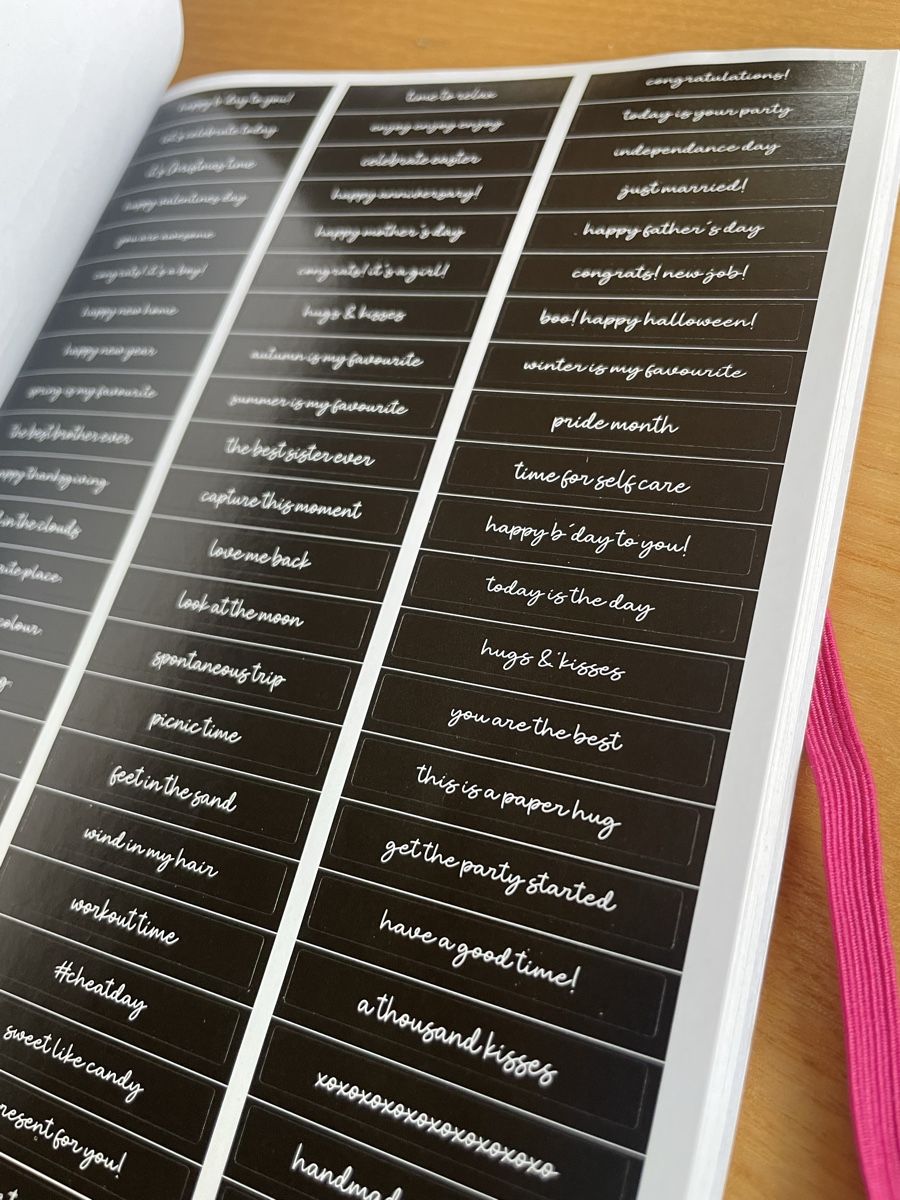 happy b'day to you!
let's celebrate today
it's Christmas time
happy valentines day
you are awesome
congrats! it's a boy!
happy new home
happy new year
spring is my favourite
the best brother ever
happy thanksgiving
in the clouds
place
colour
time to relax
enjoy enjoy enjoy
celebrate easter
happy anniversary!
happy mother's day
congrats! it's a girl!
hugs & kisses
autumn is my favourite
summer is my favourite
the best sister ever
capture this moment
love me back
look at the moon
spontaneous trip
picnic time
feet in the sand
wind in my hair
workout time
#cheatday
sweet like candy
resent for you!
congratulations!
today is your party
independance day
just married!
happy father's day
congrats! new job!
boo! happy halloween!
winter is my favourite
pride month
time for self care
happy b'day to you!
today is the day
hugs & kisses
you are the best
this is a paper hug
get the party started
have a good time!
a thousand kisses
xoxoxoxoxoxoxoxoxoxo
handmad